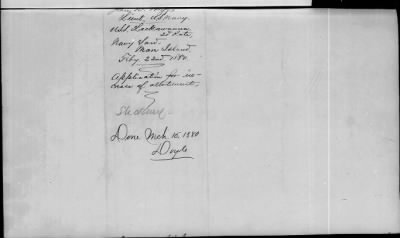 Lieut, U.S. Navy.
U.S.S. Lackawanna
2d Rate,
Navy Yard.
Mare Island.
Feby 22nd 1880.
Application for in-
crease of allotment.
Done Mch 15. 1880
Doyle